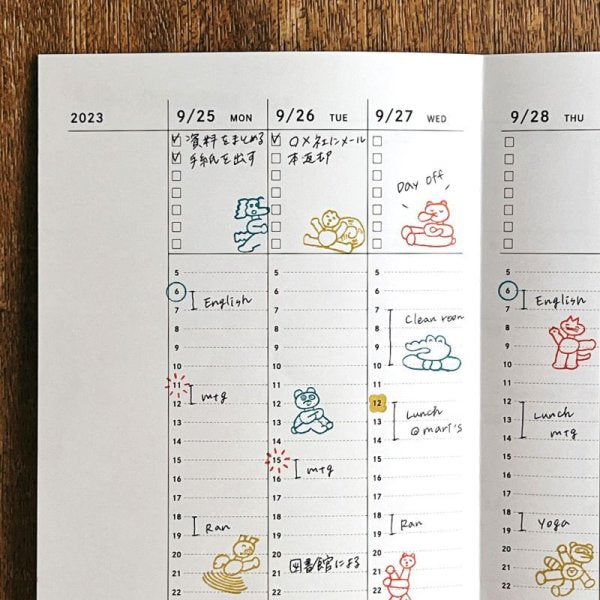 2023
9/25 MON
✓ 資料をまとめる
✓ 手紙を出す
5
6
English
7
8
9
10
11
mtg
12
13
14
15
16
17
18
Ran
19
20
21
22
9/26 TUE
✓ ○×社にメール
本返却
15
mtg
図書館による
9/27 WED
Day off
5
6
7
Clean room
8
9
10
11
12
Lunch
@mari's
13
14
15
16
17
18
Ran
19
20
21
22
9/28 THU
5
6
English
7
8
9
10
11
12
Lunch
mtg
13
14
15
16
17
18
Yoga
19
20
21
22